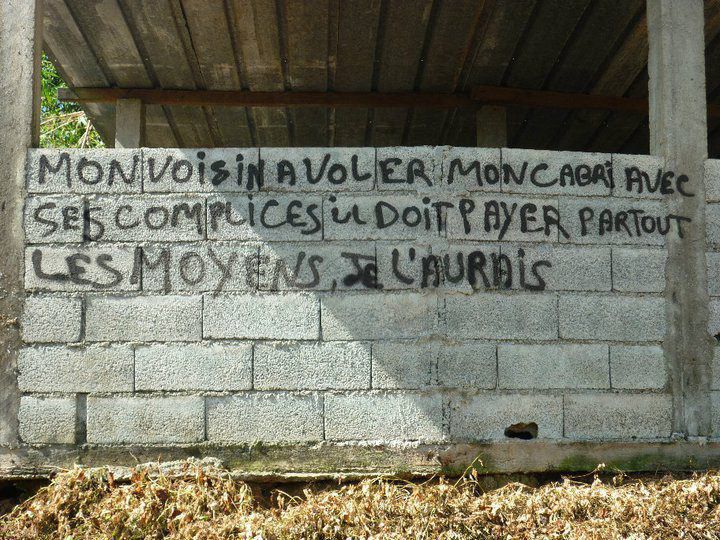 MON VOISIN A VOLER MON CABRI AVEC
SES COMPLICES IL DOIT PAYER PARTOUT
LES MOYENS, JE L'AURAIS